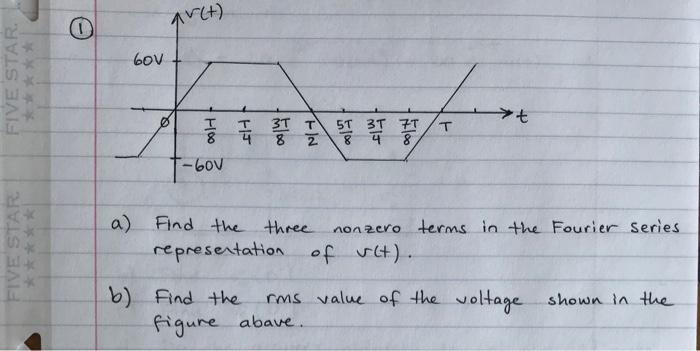 FIVE STAR.
★★★★★
FIVE STAR
★★★★★
①
v(t)
60V
0
T/8 T/4 3T/8 T/2 5T/8 3T/4 7T/8 T
t
-60V
a) Find the three nonzero terms in the Fourier series
representation of v(t).
b) Find the rms value of the voltage shown in the
figure abave.